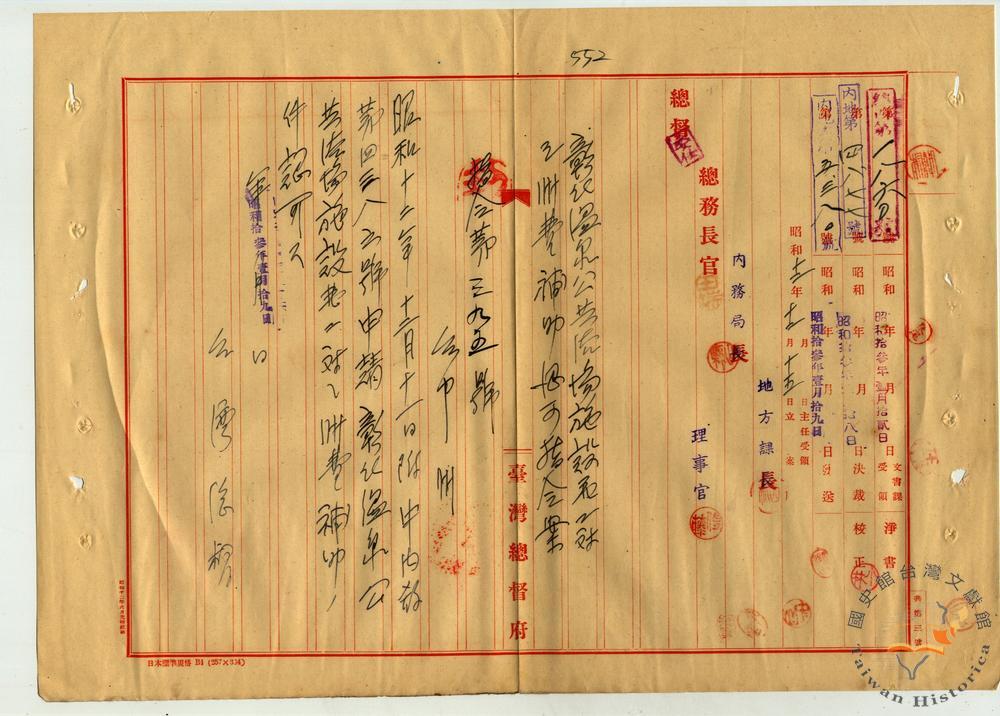 552
內地第四八七七號
第五三八〇號
昭和 年 月 日受領
昭和拾參年壹月拾貳日
文書課
淨書
昭和 年 月 日決裁
校正
昭和 年 月 日發送
昭和拾參年壹月拾九日
昭和十二年十二月十五日立案
月 日主任受領
總督
委任
總務長官
內務局長
地方課長
理事官
彰化溫泉公共浴場施設費ニ對
スル州費補助認可指令案
指令第三九五號
台中州
昭和十二年十二月十一日附中內教
第四三八六號申請彰化溫泉公
共浴場施設費ニ對スル州費補助ノ
件認可ス
年 月 日
昭和拾參年壹月拾九日
台灣總督
臺灣總督府
日本標準規格 B4 (257×364)
國史館台灣文獻館
Taiwan Historica